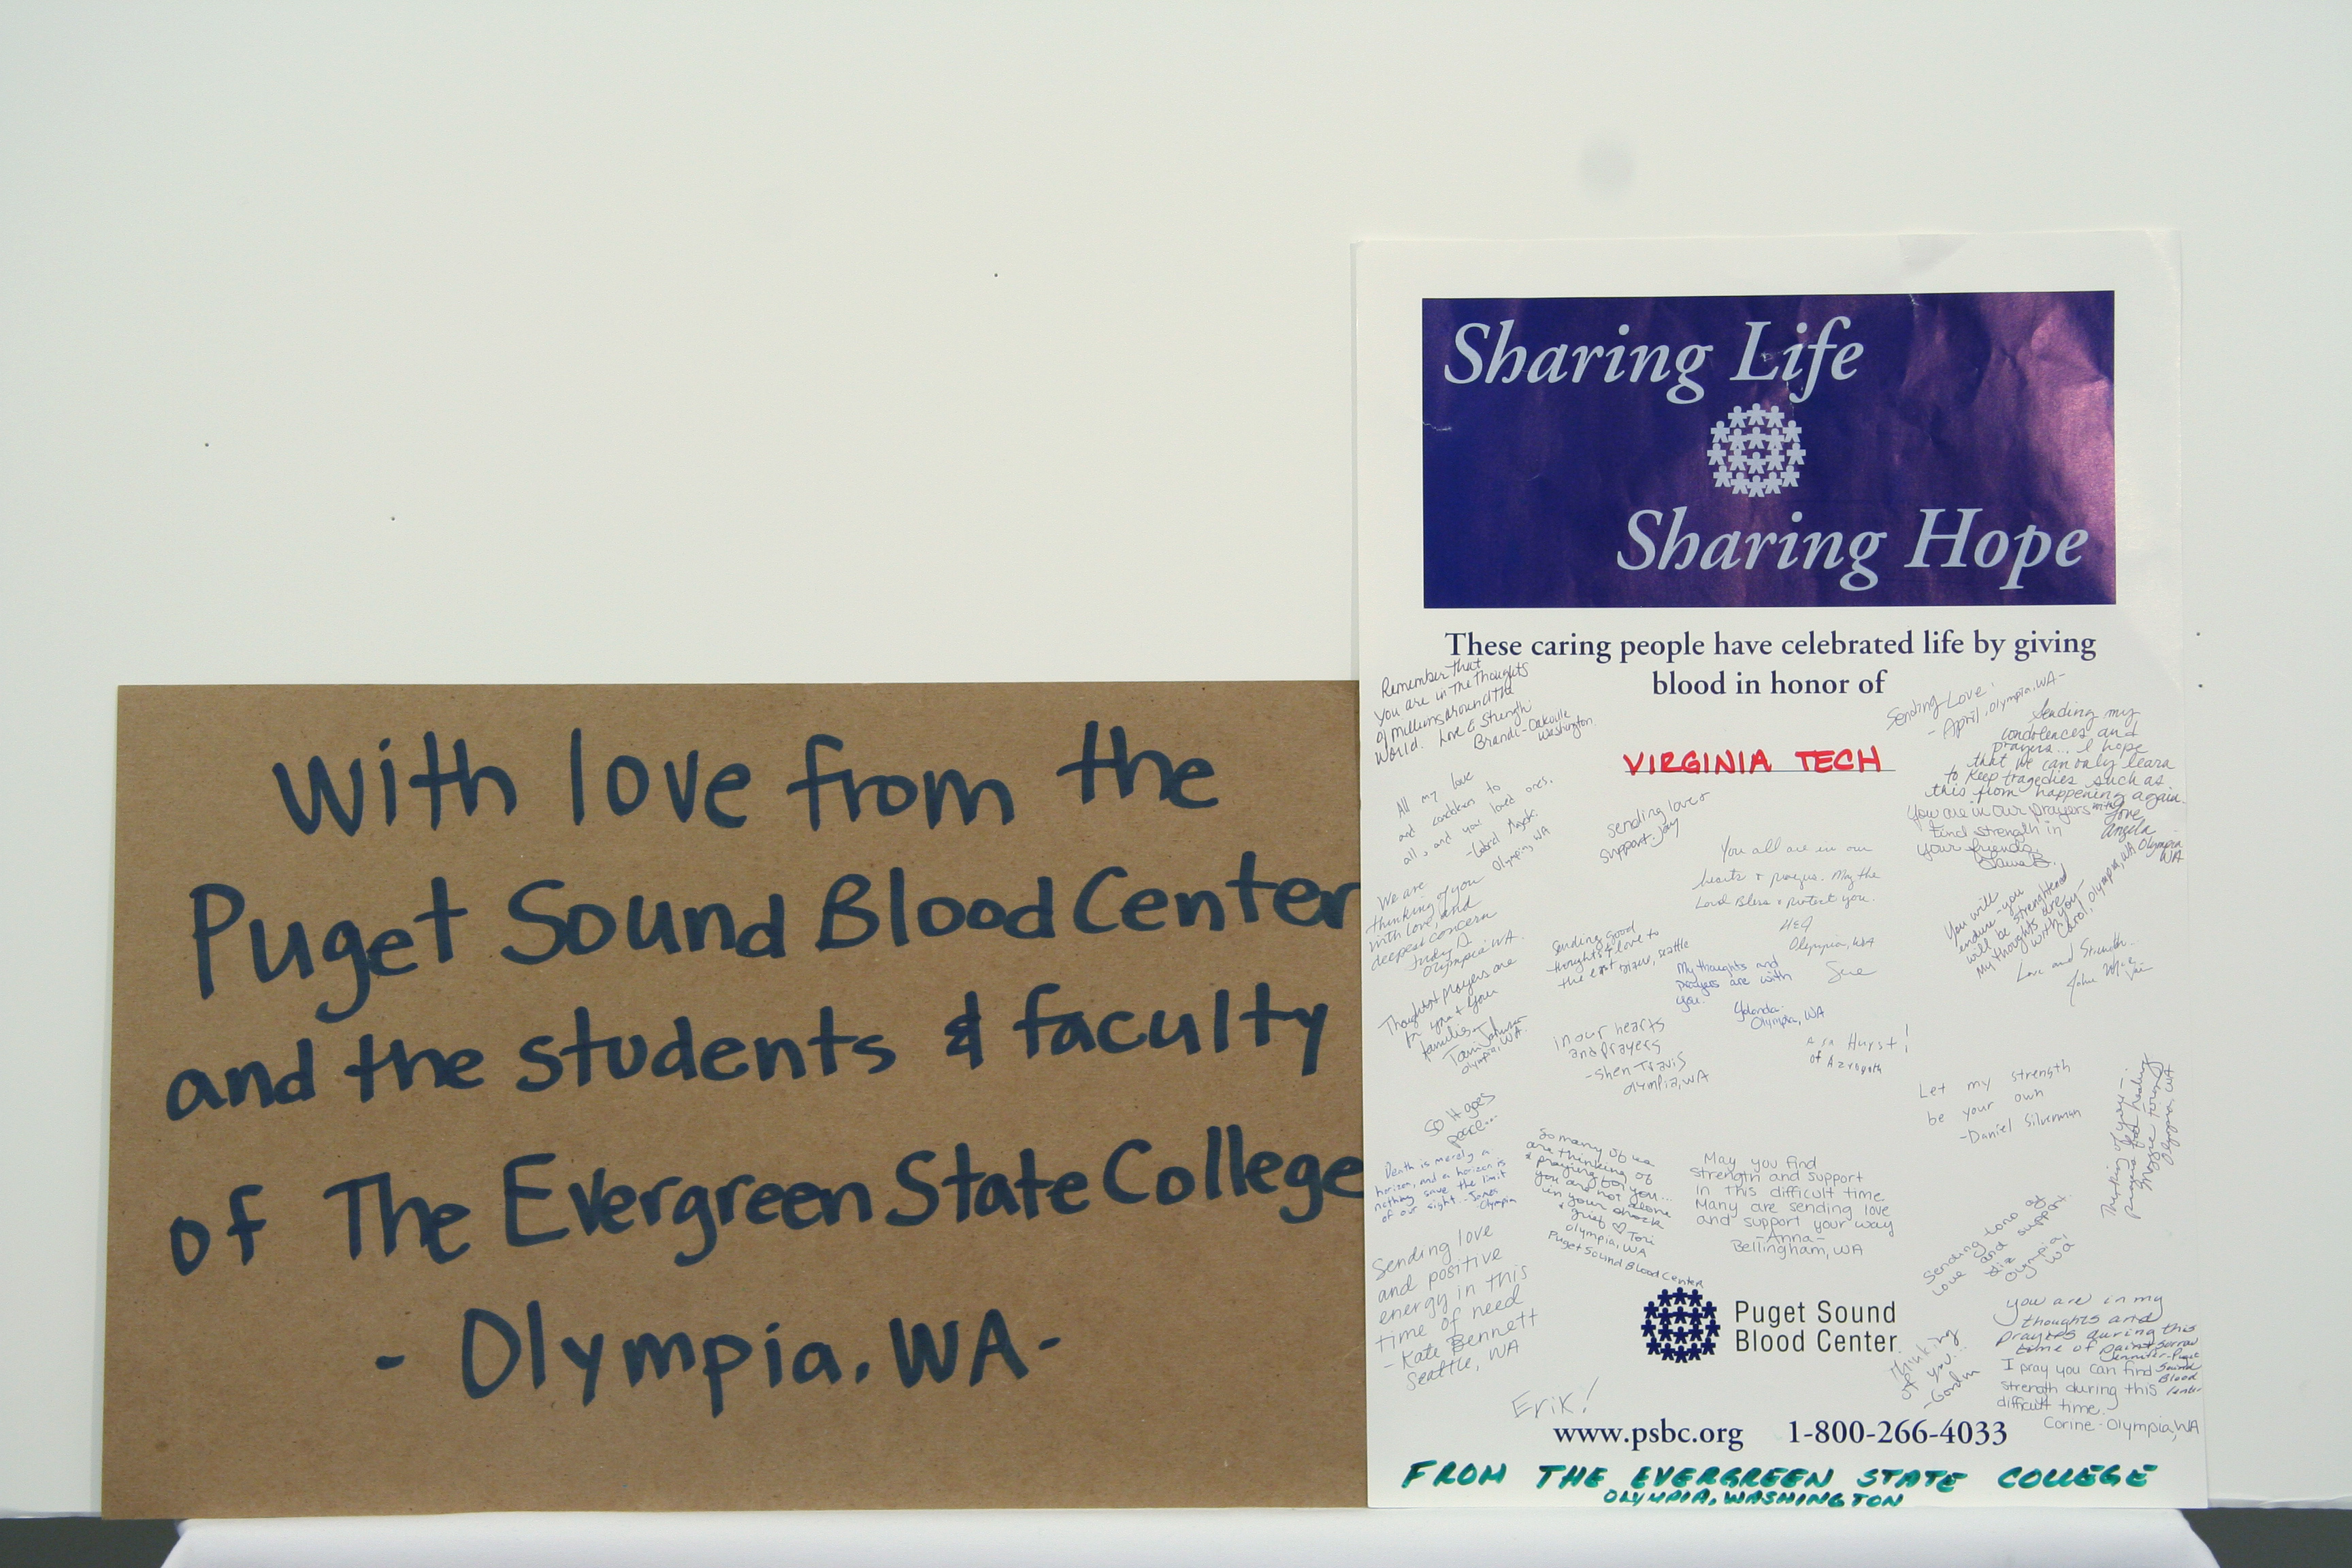 With love from the
Puget Sound Blood Center
and the students & faculty
of The Evergreen State College
- Olympia, WA -
Sharing Life
Sharing Hope
These caring people have celebrated life by giving
blood in honor of
VIRGINIA TECH
Remember that
You are in The Thoughts
of millions around the
World. Love & Strength
Brandi - Oakville
Washington.
Sending Love!
- April, Olympia, WA -
Sending my
condolences and
prayers... I hope
that we can only learn
to keep tragedies such as
this from happening again.
with love
Angela
Olympia
WA
You are in our prayers
Find strength in
your friends.
All my love
and condolences to
all, and your loved ones.
Olympia, WA
Sending love +
support. Jay
You all are in our
hearts + prayers. May the
Lord Bless + protect you.
Olympia, WA
Sue
We are
thinking of you
with love, and
deepest concern
Judy D
Olympia WA.
You will
endure - you
will be strengthened
My thoughts are
with you -
Carol, Olympia, WA
Love and Strength.
Sending good
thoughts & love to
My thoughts and
prayers are with
you.
Yolanda
Olympia, WA
Thoughts & Prayers are
for you & your
families
Tami Johnson
Olympia, WA.
in our hearts
and prayers
- Shen Travis
Olympia, WA
Asa Hurst!
of
Let my strength
be your own
- Daniel Silverman
So it goes
peace...
Thinking of you...
Olympia, WA
Death is merely a
horizon, and a horizon is
nothing save the limit
of our sight. - James
Olympia
So many of us
are thinking of
& praying for you...
you are not alone
in your shock
& grief ♡ Tori
Olympia, WA
Puget Sound Blood Center
May you find
strength and support
in this difficult time.
Many are sending love
and support your way
- Anna -
Bellingham, WA
Sending tons of
love and support.
Liz
Olympia,
WA
Sending love
and positive
energy in this
time of need
- Kate Bennett
Seattle, WA
Puget Sound
Blood Center
Thinking
of you...
- Gordon
you are in my
thoughts and
prayers during this
time of pain & sorrow
Jennifer - Puget
Sound
Blood
Center
I pray you can find
strength during this
difficult time.
Corine - Olympia, WA
Erik!
www.psbc.org 1-800-266-4033
FROM THE EVERGREEN STATE COLLEGE
OLYMPIA, WASHINGTON